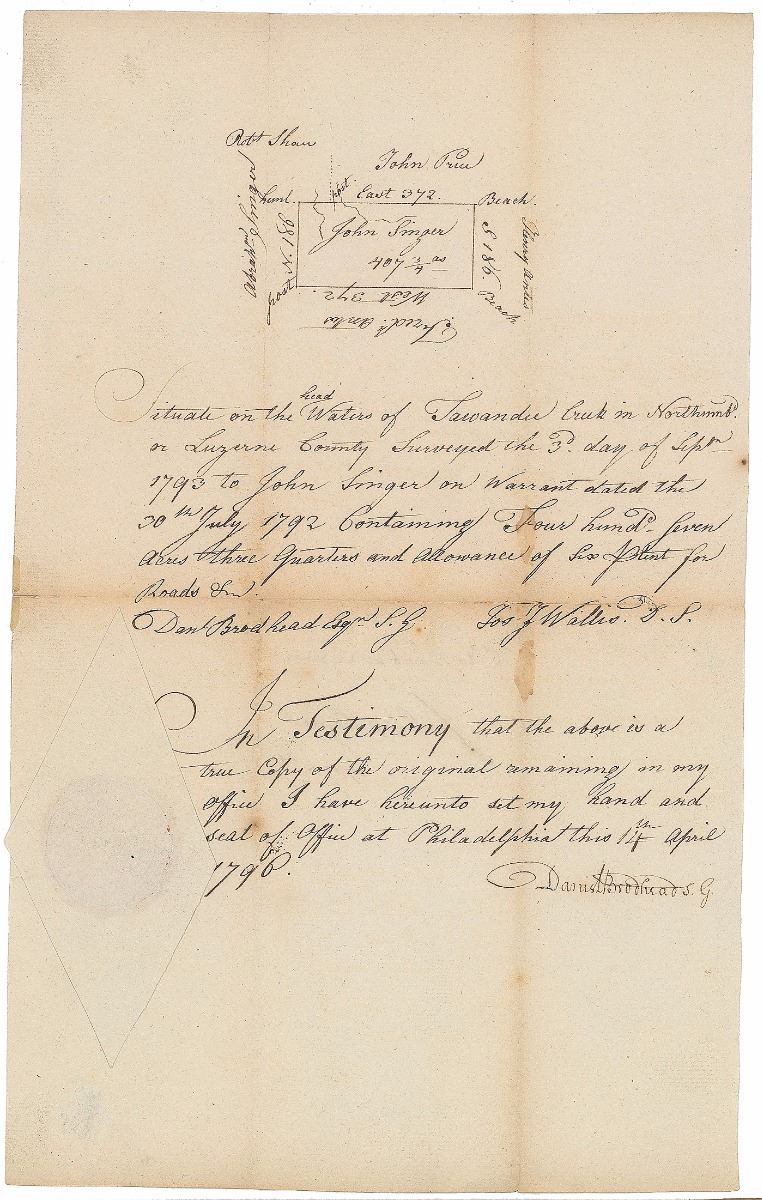 Robt Shaw
John Price
Abrahm Singer
heml.
post
East 372.
Beach.
N. 186
post
John Singer
407 3/4 as
S 186.
Beach
Henry Antes
West 372
Fredk. Antes
Situate on the head Waters of Tawandee Creek in Northumbd.
or Luzerne County Surveyed the 3d. day of Septm
1793 to John Singer on Warrant dated the
30th July 1792 Containing Four hundd. Seven
Acres three Quarters and Allowance of Six Pcent for
Roads &c.
Danl Brodhead Esqr S. G. Jos J Wallis. D. S.
In Testimony that the above is a
true Copy of the original remaining in my
office I have hereunto set my hand and
seal of Office at Philadelphia this 14th April
1796.
Daniel Brodhead S. G